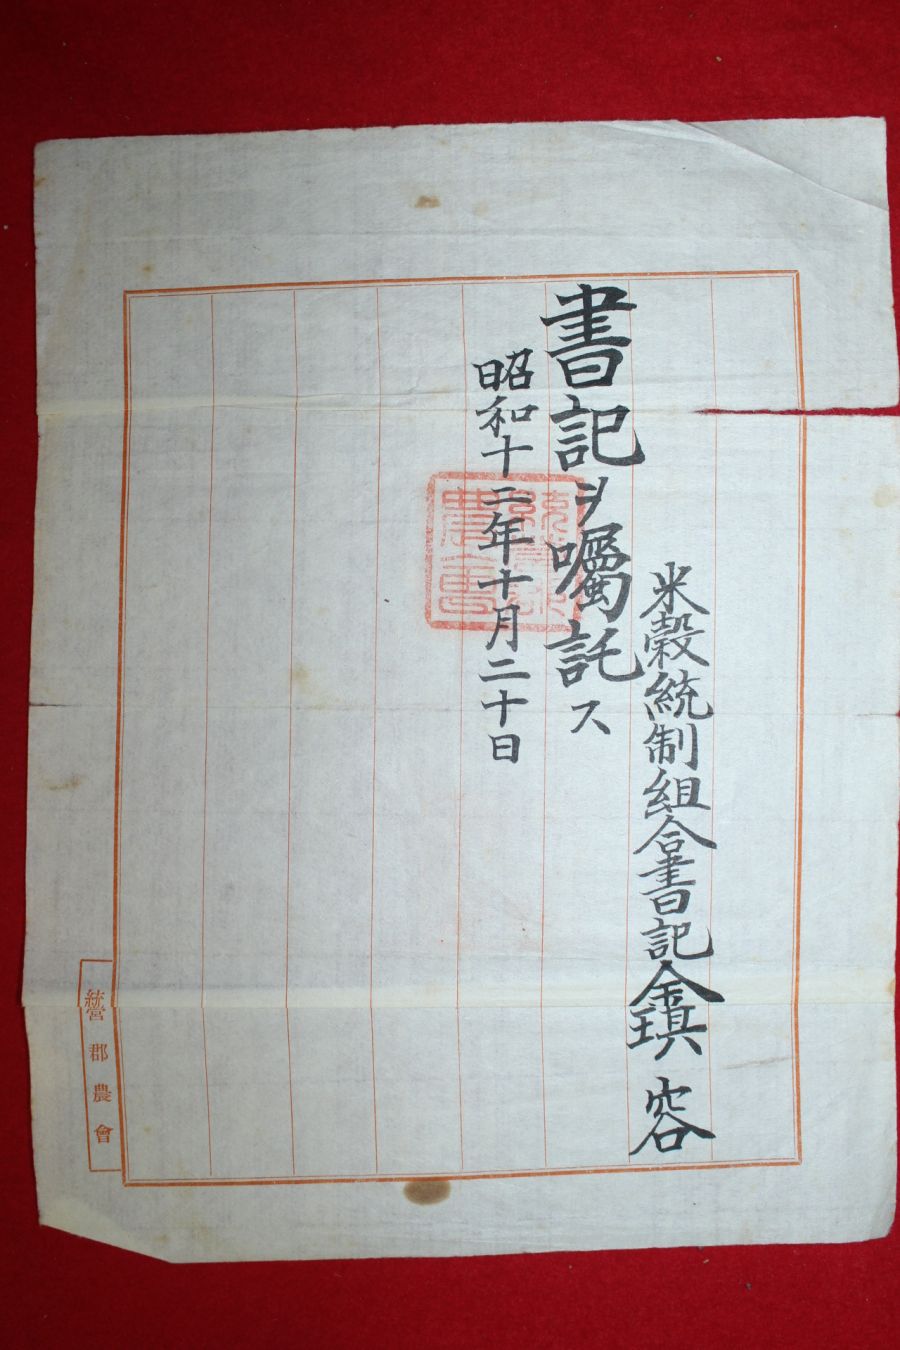 米穀統制組合書記 金瑛容
書記ヲ囑託ス
昭和十二年十月二十日
統營郡農會